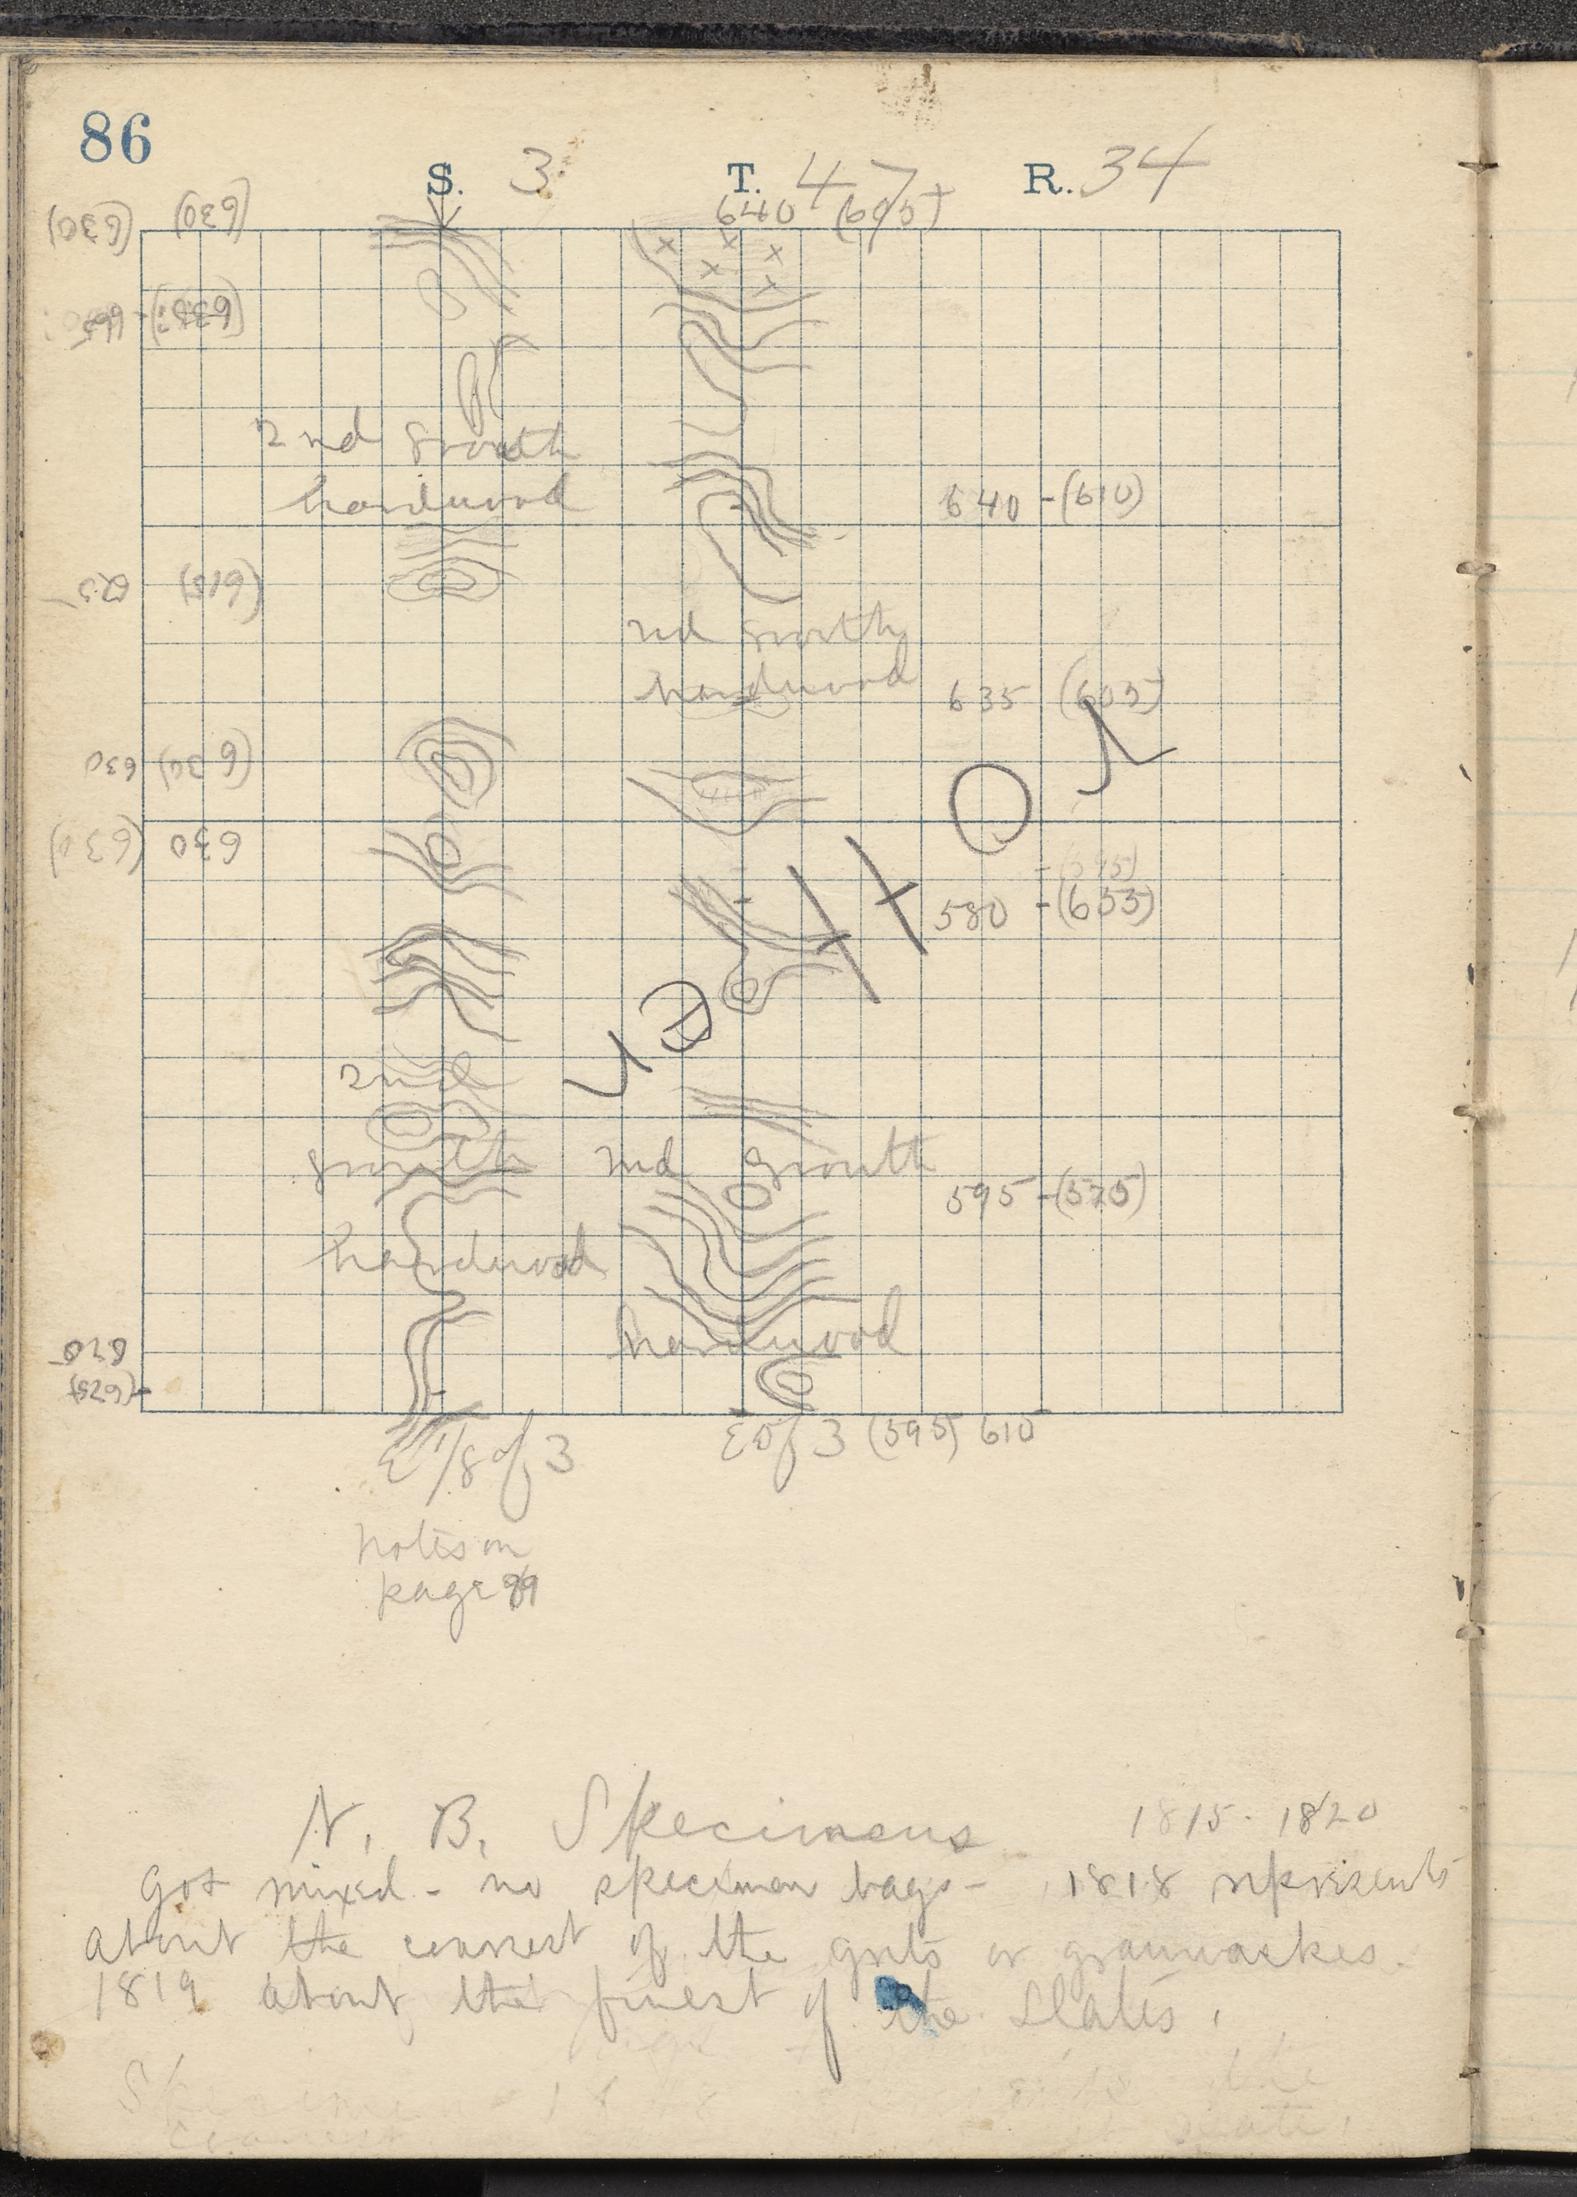 86
S. 3 T. 47 R. 34
(630) (630) 640 (605)
2nd growth
hardwood
640 - (610)
625 (615)
2nd growth
hardwood
635 (605)
630 (630)
(630) 630
580 - (655)
2nd
growth
2nd growth
595 - (575)
hardwood
hardwood
670
(675)
E 1/8 of 3
E of 3 (595) 610
notes on
page 89
N. B. Specimens 1815 - 1820
got mixed - no specimen bags - 1818 represents
about the coarsest of the grits or grauwackes.
1819 about the finest of the slates.
Specimen the
slate.